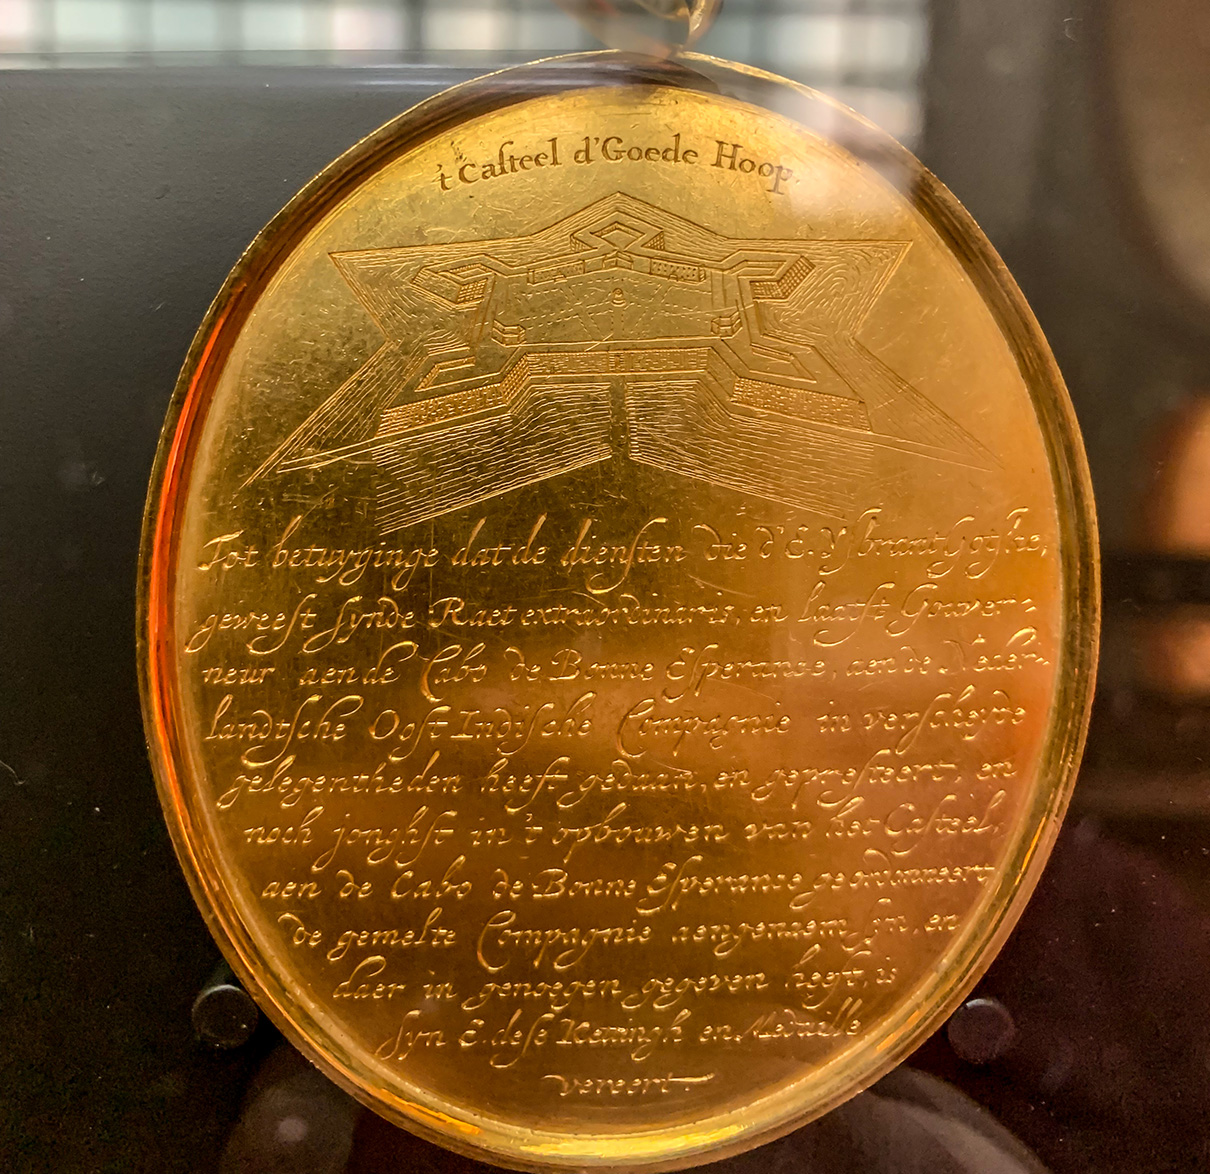 't Casteel d'Goede Hoop
Tot betuyginge dat de diensten die d'E. Ysbrant Gotske,
geweest synde Raet extraordinaris, en laatst Gouver-
neur aen de Cabo de Bonne Esperance, aen de Neder-
landtsche Oost Indische Compagnie in verscheyde
gelegentheden heeft gedaan, en gepresteert, en
noch jonghst in 't opbouwen van het Casteel,
aen de Cabo de Bonne Esperance geordonneert
de gemelte Compagnie aengenaem syn, en
daer in genoegen gegeven heeft, is
syn E. dese Kettingh en Medaille
vereert